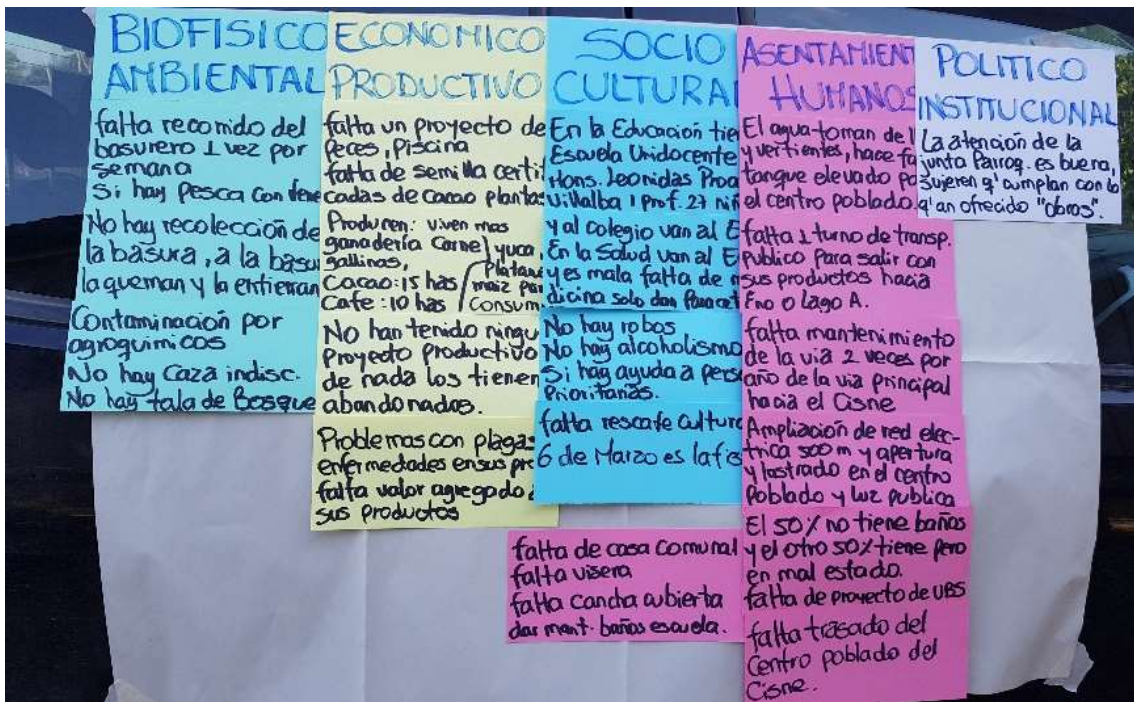 BIOFISICO
AMBIENTAL
falta recorrido del
basurero 1 vez por
semana
Si hay Pesca con
No hay recolección de
la basura, a la
la queman y la entierran
Contaminación por
agroquimicos
No hay Caza indisc.
No hay tala de Bosque
ECONOMICO
PRODUCTIVO
falta un proyecto de
Peces, Piscina
falta de semilla certi
cadas de Cacao plantas
Producen: viven mas
ganadería Carne yuca,
gallinas, Platano
Cacao: 15 has maiz para
Cafe: 10 has Consum
No han tenido ningu
Proyecto productivo
de nada los tienen
abandonados.
Problemas con plagas
enfermedades en sus pro
falta valor agregado a
sus productos
SOCIO
CULTURAL
En la Educación tie
Escuela Unidocente
Mons. Leonidas Proa
Villalba 1 Prof. 27 niñ
y al colegio van al E
En la Salud van al E
y es mala falta de m
dicina solo dan Paracet
No hay robos
No hay alcoholismo
Si hay ayuda a pers
Prioritarias.
falta rescate cultura
6 de Marzo es la fies
ASENTAMIENT
HUMANOS
El agua toman de
y vertientes, hace fa
tanque elevado pa
el centro poblado.
falta 1 turno de transp.
Publico para salir con
sus productos hacia
Eno o Lago A.
falta mantenimiento
de la via 2 veces por
año de la via principal
hacia el Cisne
Ampliación de red elec-
trica 500 m y apertura
y lastrado en el centro
Poblado y luz publica
El 50% no tiene baños
y el otro 50% tiene pero
en mal estado.
falta de proyecto de UBS
falta trasado del
Centro poblado del
Cisne.
falta de casa comunal
falta visera
falta cancha cubierta
dar mant. baños escuela.
POLITICO
INSTITUCIONAL
La atención de la
junta Parroq. es buena,
sujieren q' cumplan con lo
q' an ofrecido "obras".